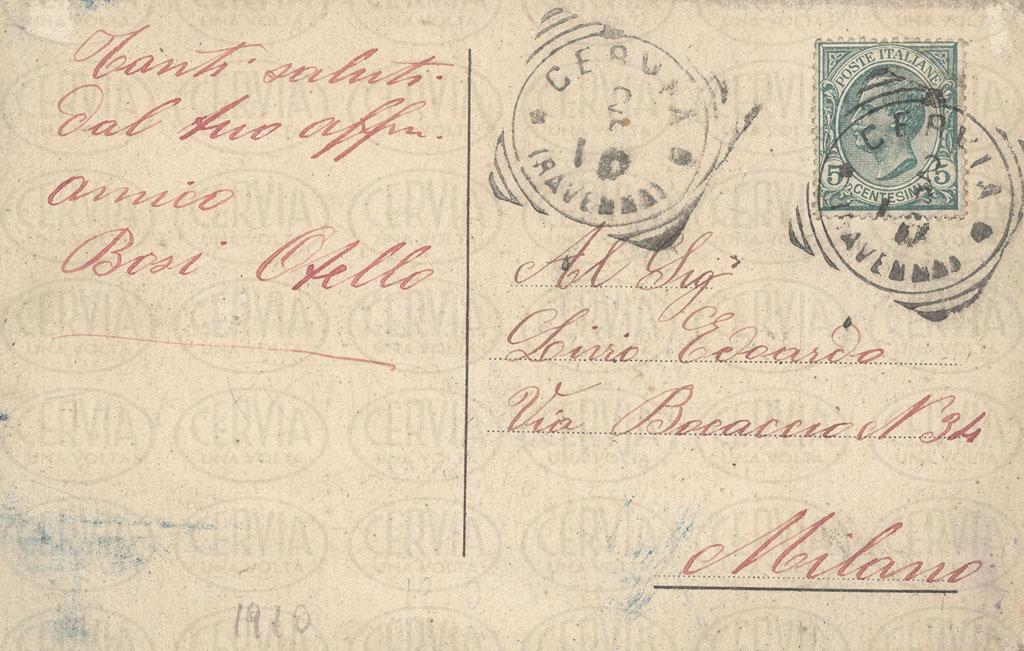 Tanti saluti
dal tuo affm.
amico
Bosi Otello
CERVIA
2
10
(RAVENNA)
POSTE ITALIANE
5 5
CENTESIMI
CERVIA
(RAVENNA)
Al Sigr
Livio Edoardo
Via Bocaccio N 34
Milano
1910
CERVIA
UNA VOLTA